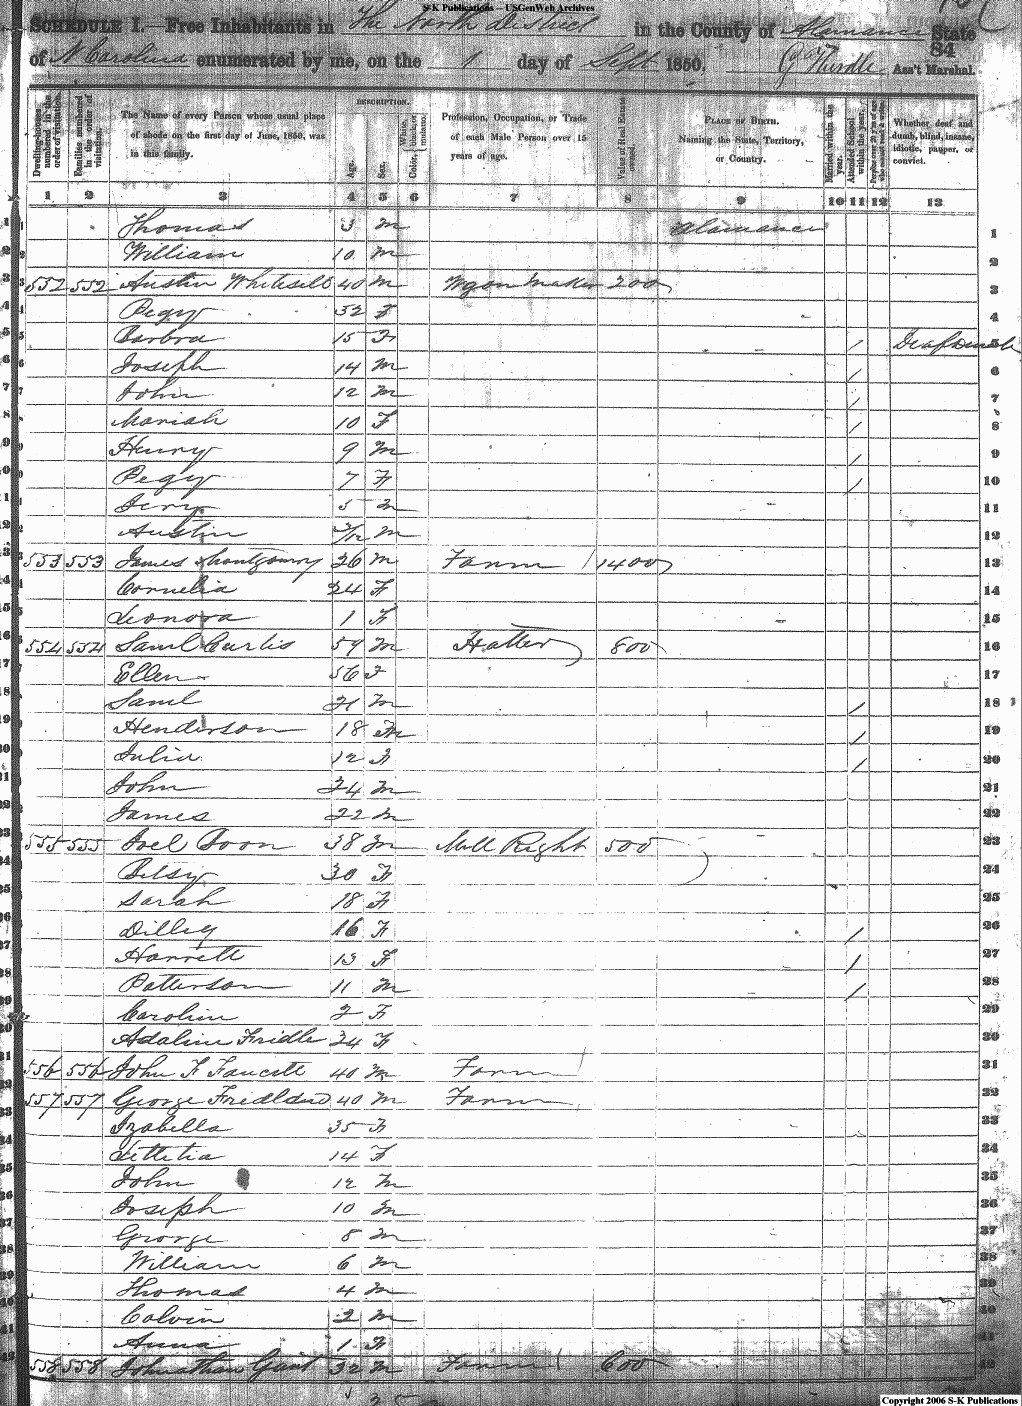 S-K Publications -- USGenWeb Archives
SCHEDULE I.—Free Inhabitants in The North District in the County of Alamance State
84
of N Carolina enumerated by me, on the 1 day of Sept 1850. Ass't Marshal.
DESCRIPTION.
Dwelling-houses numbered in the order of visitation.
Families numbered in the order of visitation.
The Name of every Person whose usual place of abode on the first day of June, 1850, was in this family.
Age.
Sex.
Color, White, black, or mulatto.
Profession, Occupation, or Trade of each Male Person over 15 years of age.
Value of Real Estate owned.
PLACE OF BIRTH. Naming the State, Territory, or Country.
Married within the year.
Attended School within the year.
Whether deaf and dumb, blind, insane, idiotic, pauper, or convict.
1 2 3 4 5 6 7 8 9 10 11 12 13
1 Thomas 3 M Alamance 1
2 William 10 M 2
3 552 552 Austin Whitesell 40 M Wgon Maker 200 3
4 Pegy 32 F 4
5 Barbra 15 F / Deaf Dumb 5
6 Joseph 14 M / 6
7 John 12 M / 7
8 Mariah 10 F / 8
9 Henry 9 M / 9
10 Pegy 7 F / 10
11 Jery 5 M 11
12 Austin 2/12 M 12
13 553 553 James Montgomry 26 M Farm 1400 13
14 Cornelia 24 F 14
15 Leonora 1 F 15
16 554 554 Saml Curtis 59 M Hatter 800 16
17 Ellen 56 F 17
18 Saml 21 M / 18
19 Henderson 18 M / 19
20 Julia 12 F / 20
21 John 24 M 21
22 James 22 M 22
23 555 555 Joel Boon 38 M Mill Right 500 23
24 Betsy 30 F 24
25 Sarah 18 F 25
26 Dilley 16 F / 26
27 Harrett 13 F / 27
28 Patterson 11 M / 28
29 Carolin 2 F 29
30 Adaline Fridle 24 F 30
31 556 556 John F Faucett 40 M Farm 31
32 557 557 George 40 M Farm 32
33 Izabella 35 F 33
34 Lettetia 14 F 34
35 John 12 M 35
36 Joseph 10 M 36
37 George 8 M 37
38 William 6 M 38
39 Thomas 4 M 39
40 Calvin 2 M 40
41 Anna 1 F 41
42 558 558 Johnathan Gant 32 M Farm 600 42
Copyright 2006 S-K Publications